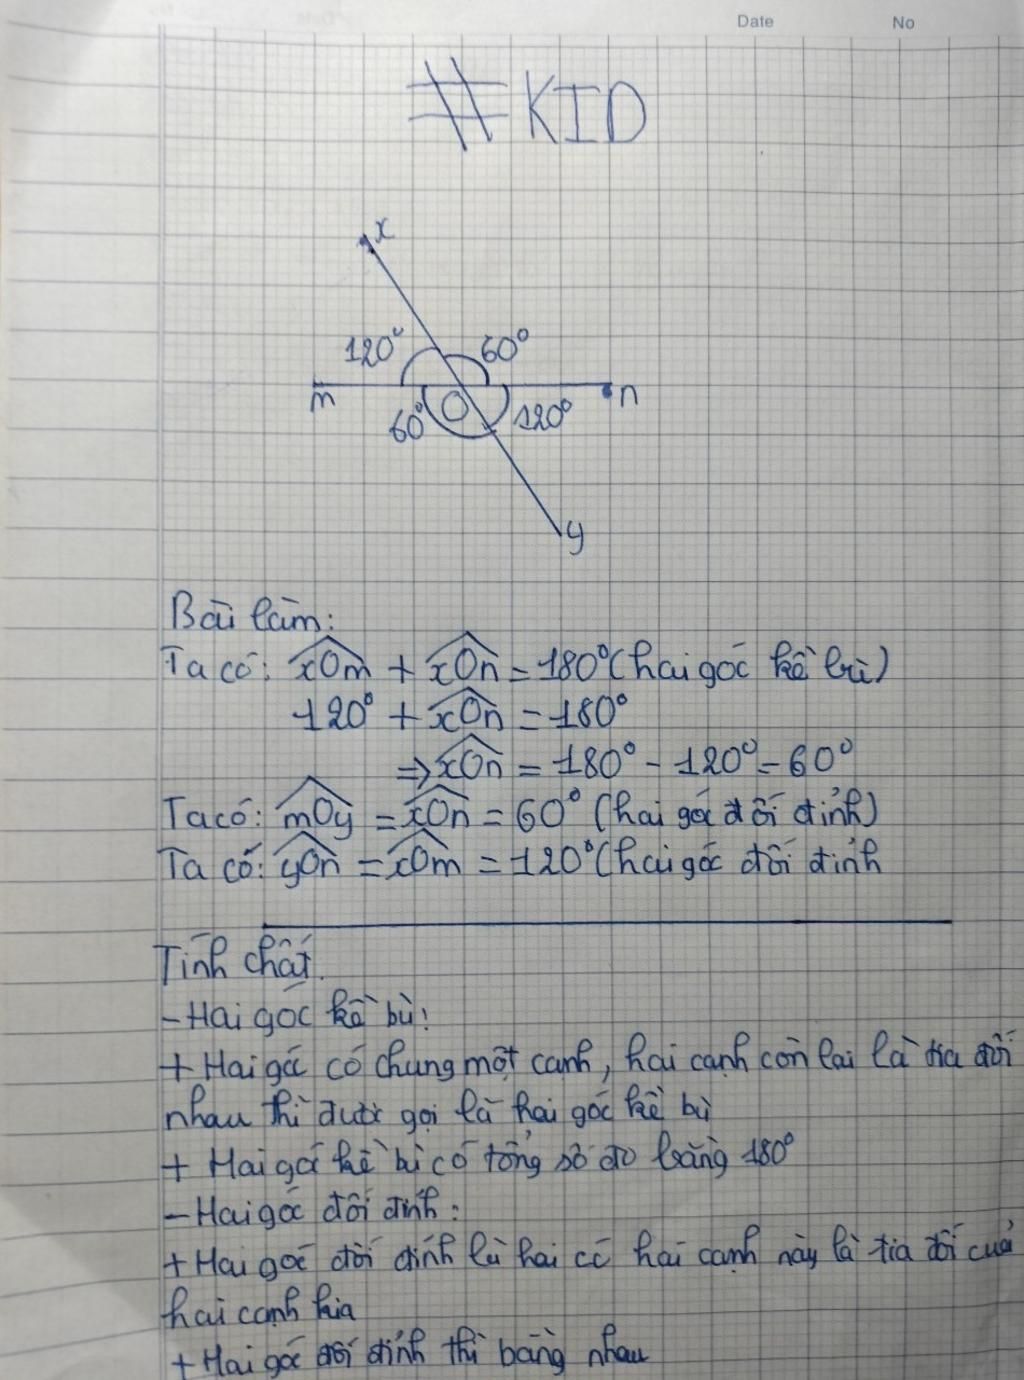 Date No
#KID
x
120° 60°
m n
60° O 120°
y
Bài làm:
Ta có: xOm + xOn = 180° (hai góc kề bù)
120° + xOn = 180°
⇒ xOn = 180° - 120° = 60°
Ta có: mOy = xOn = 60° (hai góc đối đỉnh)
Ta có: yOn = xOm = 120° (hai góc đối đỉnh
Tính chất.
- Hai góc kề bù:
+ Hai góc có chung một cạnh, hai cạnh còn lại là tia đối
nhau thì được gọi là hai góc kề bù
+ Hai góc kề bù có tổng số đo bằng 180°
- Hai góc đối đỉnh:
+ Hai góc đối đỉnh là hai có hai cạnh này là tia đối của
hai cạnh kia
+ Hai góc đối đỉnh thì bằng nhau